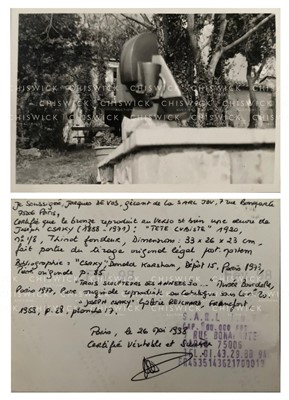 CHISWICK CHISWICK
Je soussigné, Jacques DE VOS, gérant de la SARL JDV, 7 rue Bonaparte
75006 PARIS,
Certifie que le bronze reproduit au verso est bien une œuvre de
Joseph CSAKY (1888-1971) : "TETE CUBISTE" 1920,
n° 1/8, Thinot fondeur, Dimension : 33 x 26 x 23 cm,
fait partie du tirage original légal
Bibliographie : "CSAKY" Donald Karshan, Dépôt 15. Paris 1973,
"TROIS SCULPTEURS DES ANNEES 30..." Musée Bourdelle,
Paris, Pierre originale reproduite au catalogue sous le n° 20.
"JOSEPH CSAKY" Galerie REICHARD, FRANKFURT,
1988, p. 28, planche 17.
Paris, le 26 Mai 1998
Certifié Véritable et Sincère
S.A.R.L.
RUE BONAPARTE
75006
01.43.29.88